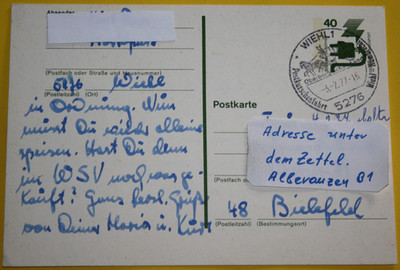 Absender
(Postfach oder Straße und Hausnummer)
5276 Wiehl
(Postleitzahl) (Ort)
in Ordnung. Nun
musst Du wieder alleine
speisen. Hast Du denn
im WSV noch was ge-
kauft? Ganz herzl. Grüße
von Deiner Maria u. Kurt
40
WIEHL 1
5276
Postkarte
Adresse unter
dem Zettel.
Alleranzen B1
(Postfach
48 Bielefeld
(Postleitzahl) (Bestimmungsort)